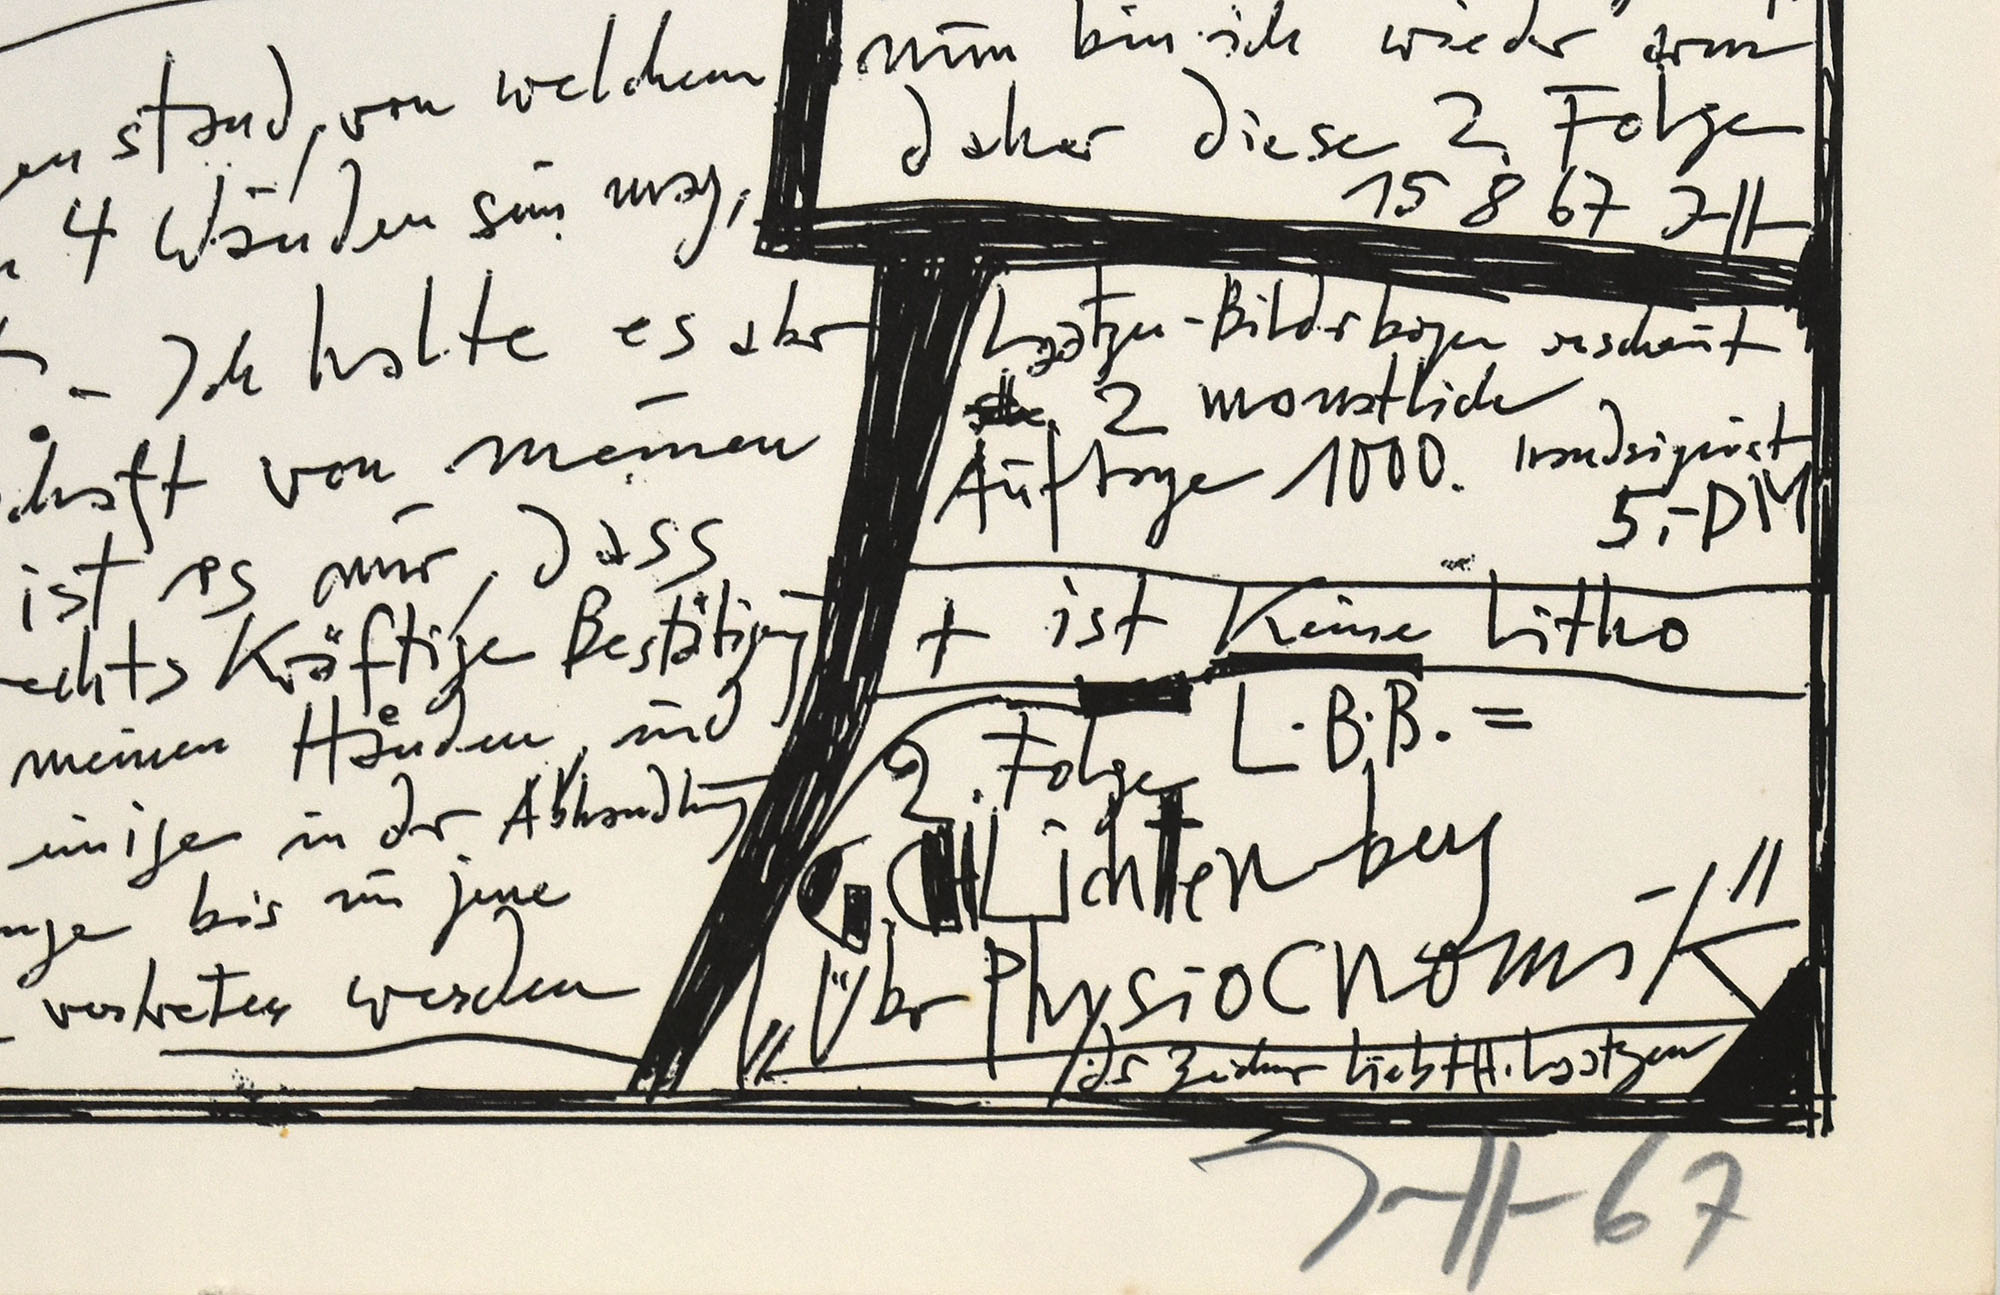 en stand, von welchem
4 Wänden sein mag,
- Ich halte es aber
von meinen
ist es nur, dass
rechts Kräftige Bestätigung
meinen Händen, und
einige in der Abhandlung
bis in jene
vertreten werden
nun bin ich wieder
daher diese 2. Folge
15 8 67
Laatzen-Bilderbogen erscheint
2 monatlich
Auflage 1000. handsigniert
5,-DM
+ ist Keine Litho
L.B.B. =
2. Folge
Lichtenberg
"Über PhysioGNomiK"
der Zeichner liebt H. Laatzen
67